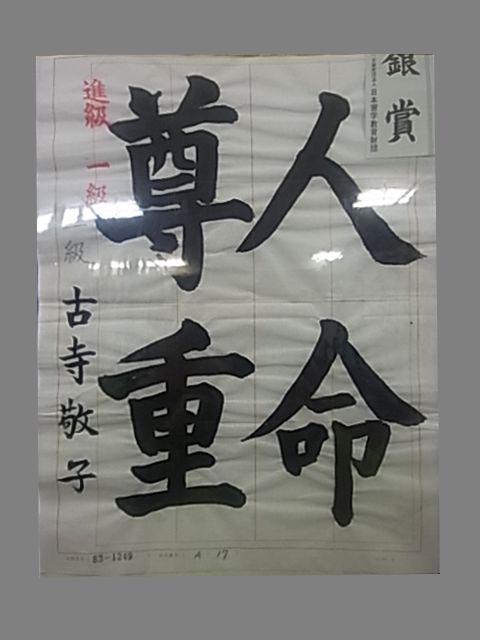 人命
尊重
進級 一級
級 古寺敬子
銀賞
日本習字教育財団
83-1249
A 17